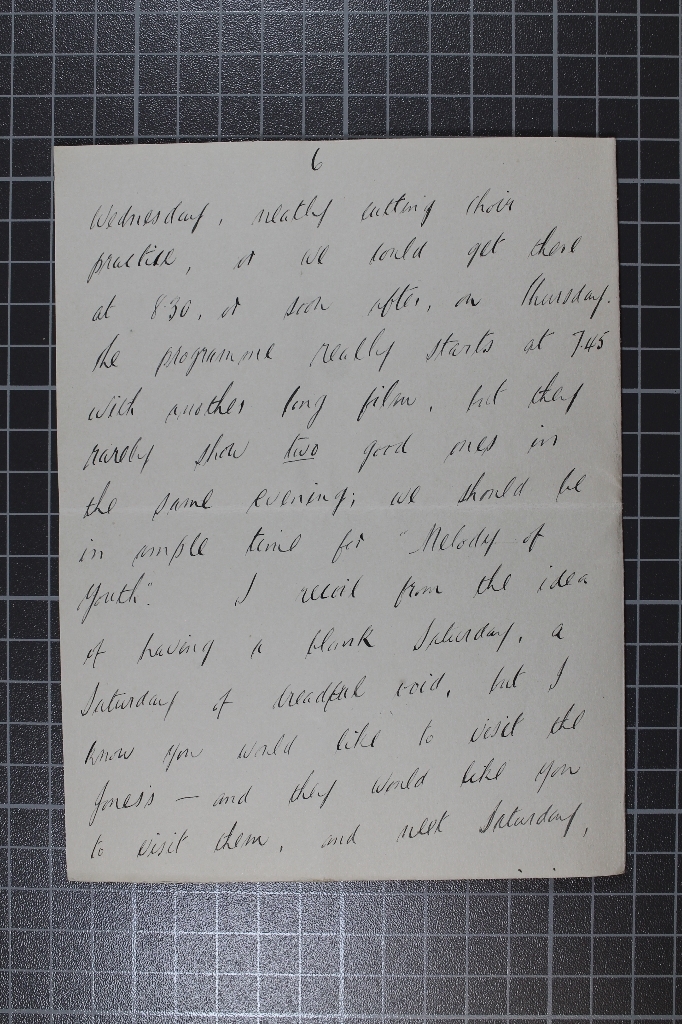 6
Wednesday, neatly cutting choir
practice, or we could get there
at 8.30, or soon after, on Thursday.
The programme really starts at 7.45
with another long film, but they
rarely show two good ones in
the same evening; we should be
in ample time for "Melody of
Youth". I recoil from the idea
of having a blank Saturday, a
Saturday of dreadful void, but I
know you would like to visit the
Jones's — and they would like you
to visit them, and next Saturday,